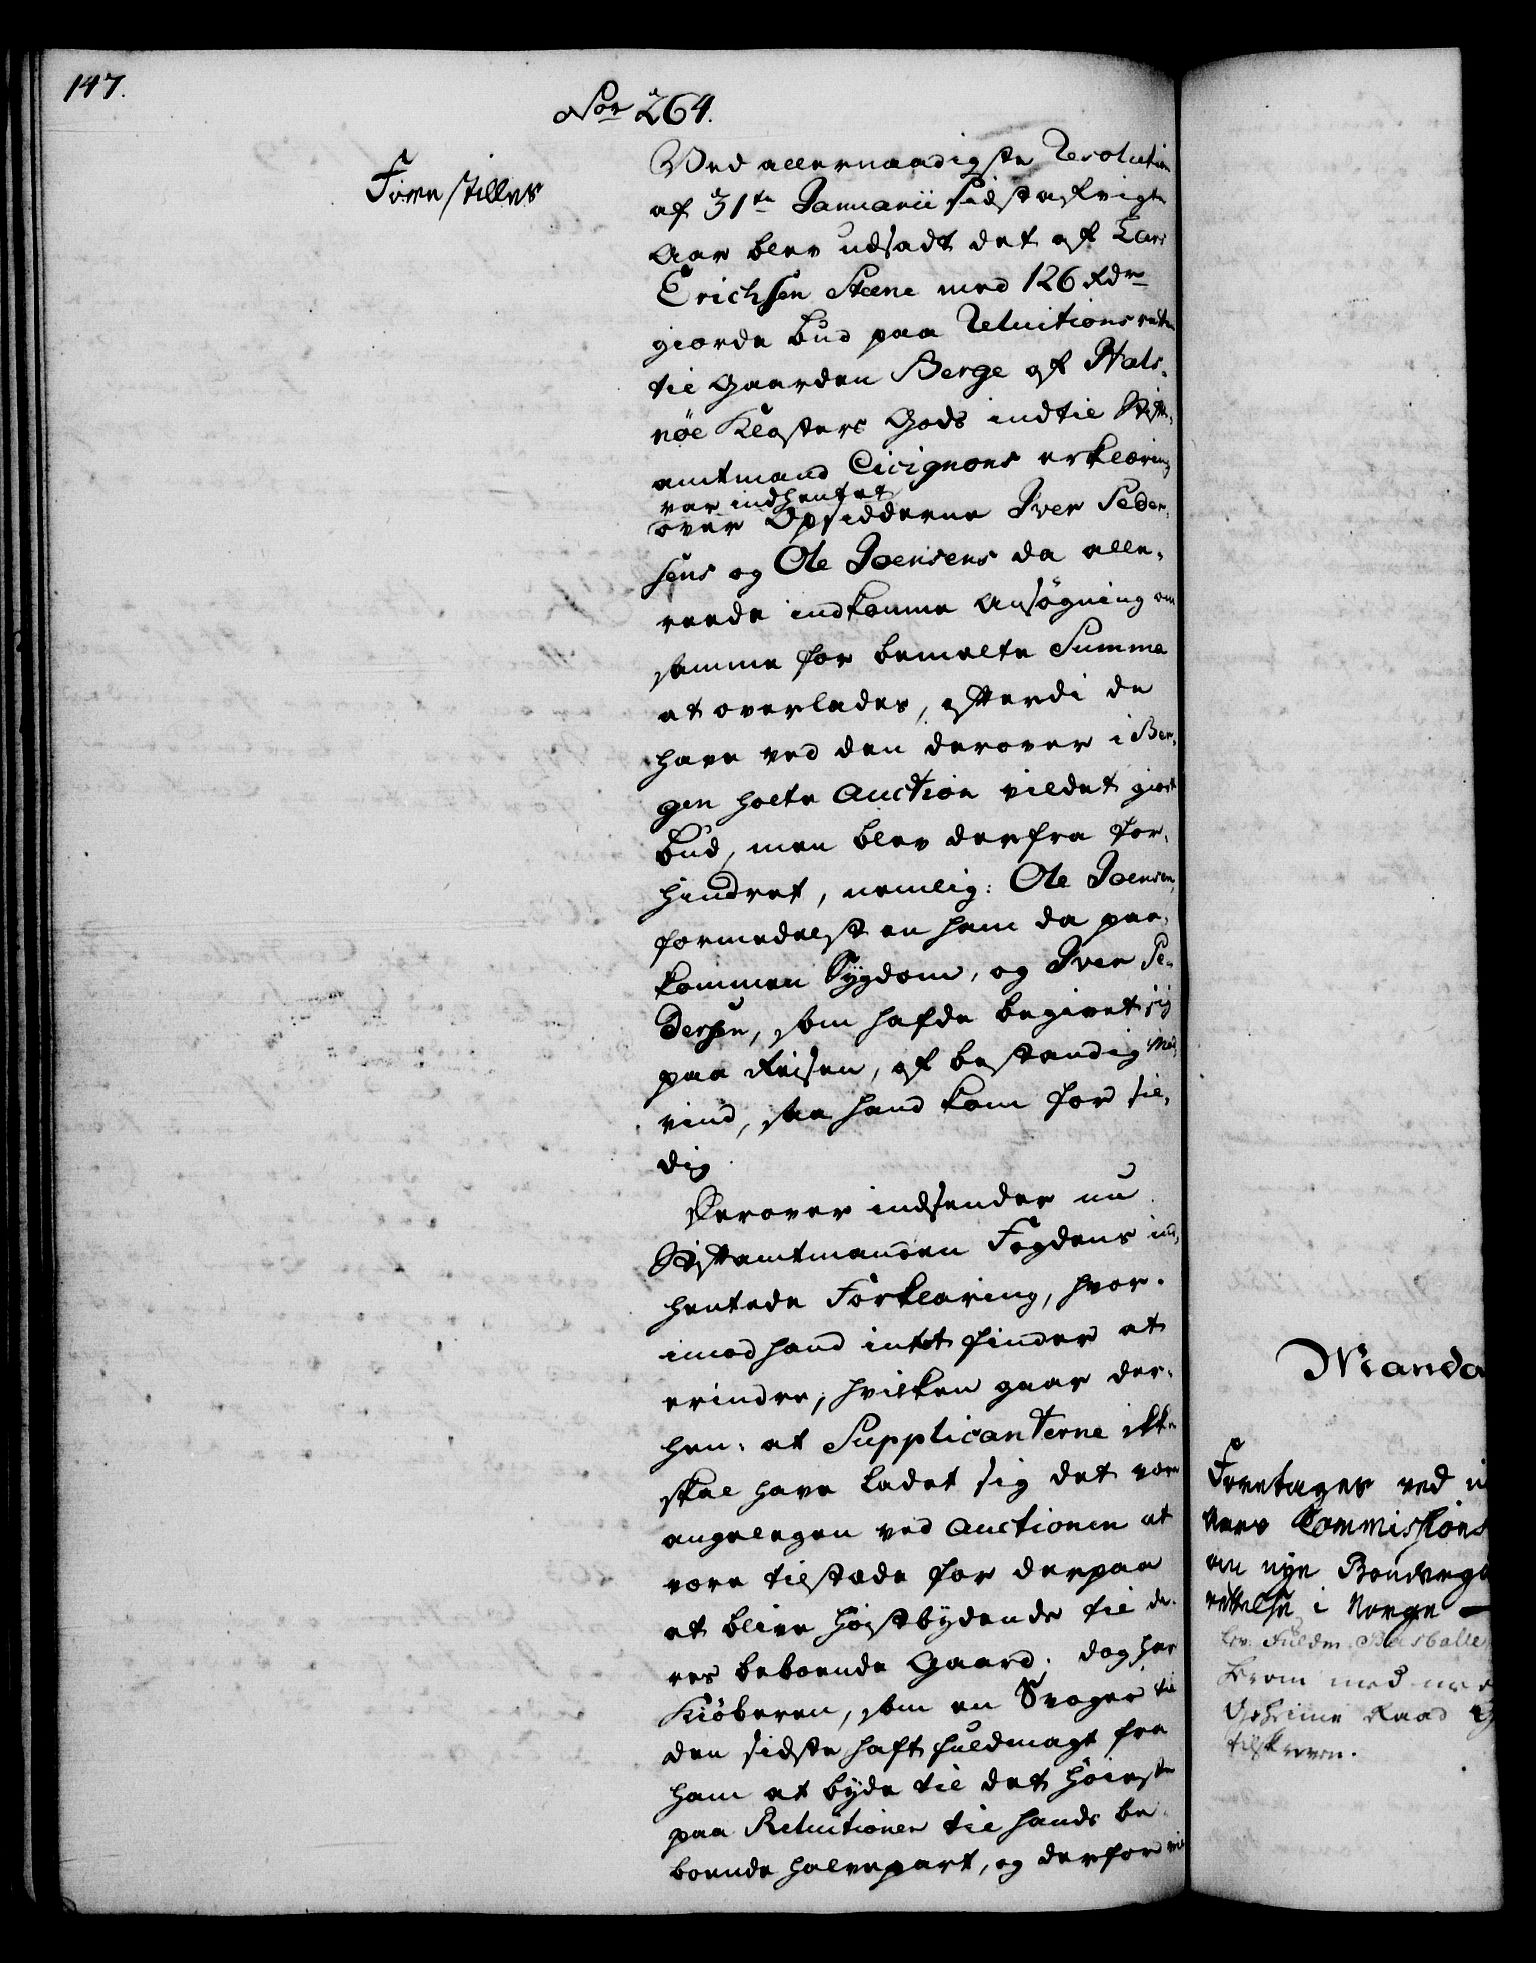 147.
Nor 264.
Forestilles
Ved allernaadigste Resolution
af 31te Januarii sidstafvigte
Aar blev udsadt det af Lars
Erichsen Steene med 126 Rdr
giorde bud paa Reluitionsretten
til Gaarden Berge af Hals-
nöe Klosters Gods indtil Stift-
amtmand Cicignons erklæring
var indhentet
over Opsidderne Iver Peder-
sens og Ole Joensens da alle-
reede indkomne Ansøgning om
samme for bemelte Summa
at overlades, efterdi de
have ved den derover i Ber-
gen holte Auction vildet giort
bud, men blev derfra for-
hindret, nemlig: Ole Joensen,
formedelst en ham da paa-
kommen Sygdom, og Iver Pe-
dersen, som hafde begivet sig
paa Reisen, af bestandig Mod-
vind, saa hand kom for sil-
dig.
Herover indsender nu
Stiftamtmanden Fogdens ind-
hentede Forklaring, hvor-
imod hand intet finder at
erindre, hvilken gaar der-
hen: at Supplicanterne ikke
skal have ladet sig det være
angelegen ved Auctionen at
være tilstæde for derpaa
at blive høistbydende til de-
res beboende Gaard; dog har
Kiøberen, som en Svoger til
den sidste haft fuldmagt fra
ham at byde til det høieste
paa Reluitionen til hands be-
boende halvepart, og derfor vil
Manda
Foretages ved
vers Commissions
om nye Bondergo
rettelse i Norge —
lev. Fuldm.
med
Geheime Raad
tilskreven.